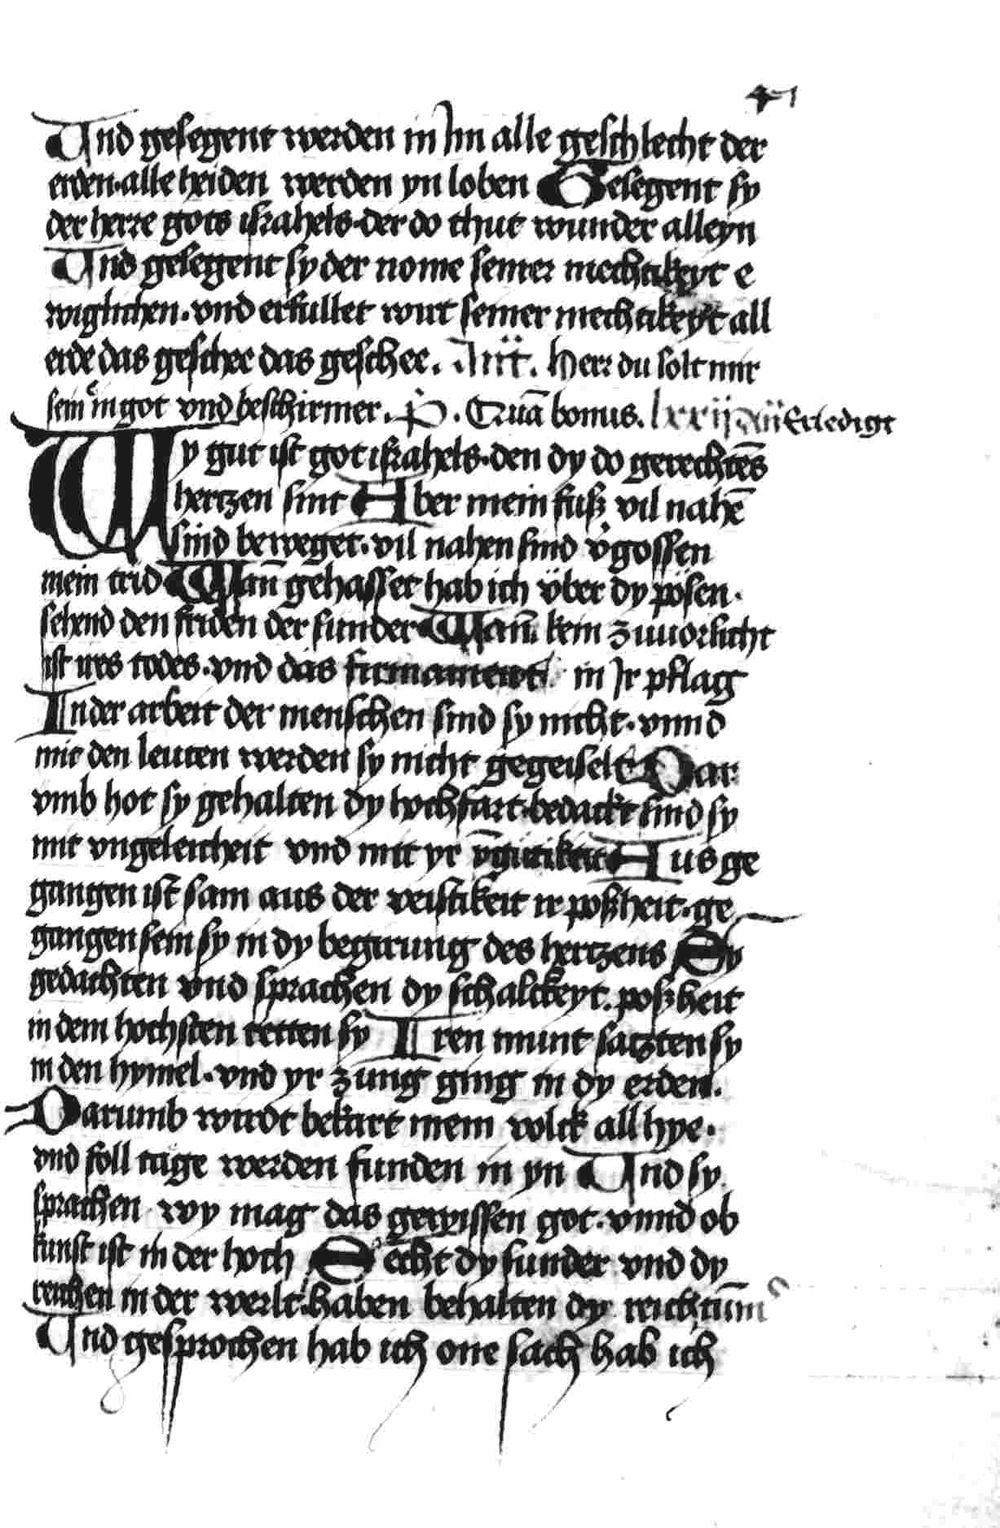 Und gesegent werden in Im alle geschlecht der
erden·alle heiden werden yn loben Gesegent sy
der herre gots israhels·der do thut wunder alleyn
Und gesegent sy der nome seiner mechtikeyt e
wiglichen·vnd erfullet wirt seiner mechtikeyt all
erde das geschee das geschee. Herr du solt mir
sein in got vnd beschirmer. P. Quā bonus. lxxij Erledigt
Wy gut ist got israhels·den dy do gerechtēs
hertzen sint Aber mein fusz vil nahē
sind beweget·vil nahen sind v̓gossen
mein trid Wañ gehasset hab ich v̈ber dy pösen·
sehend den friden der sunder Wañ kein zuuorsicht
ist irs todes·vnd das firmament in Ir pflag
In der arbeit der menschen sind sy nicht·vnnd
mit den leuten werden sy nicht gegeiselt Dar
vmb hot sy gehalten dy hochfart·bedackt sind sy
mit vngeleicheit vnd mit yr v̄gutikeit Aus ge
gangen ist sam aus der veistikeit ir poszheit·ge
gangen sein sy in dy begirung des hertzens Sy
gedachten vnd sprachen dy schalckeyt. poszheit
in dem hochsten retten sy Iren munt satzten sy
in den hymel·vnd yr zung ging in dy erden.
Darumb wirdt bekart mein volck all hye·
vnd foll tage werden funden in yn Und sy
sprachen wy mag das gewissen got·vnnd ob
kunst ist in der hoch Secht dy sunder vnd dy
reichen in der werlt·haben behalten dy reichtūm
Und gesprochen hab ich one sach hab ich